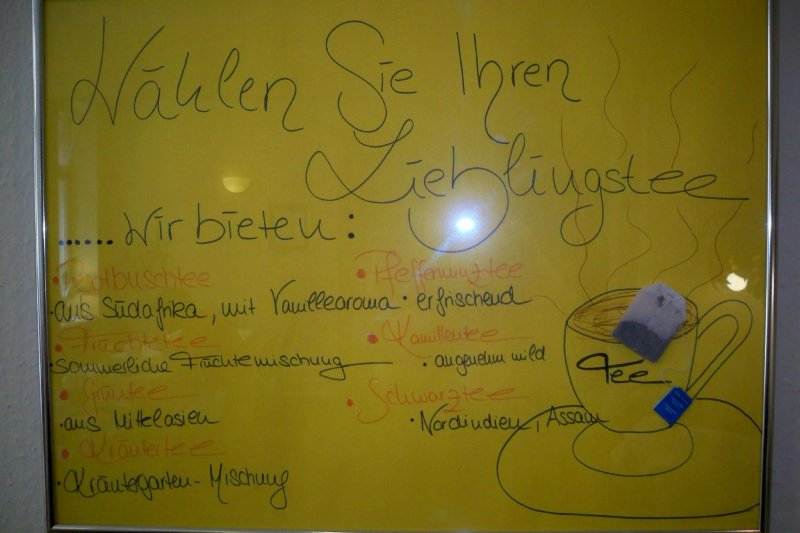 Wählen Sie Ihren
Lieblingstee
...... Wir bieten:
• Rotbuschtee
• aus Südafrika, mit Vanillearoma
• Früchtetee
• sommerliche Früchtemischung
• Grüntee
• aus Mittelasien
• Kräutertee
• Kräutergarten-Mischung
• Pfefferminztee
• erfrischend
• Kamillentee
• angenehm mild
• Schwarztee
• Nordindien, Assam
Tee